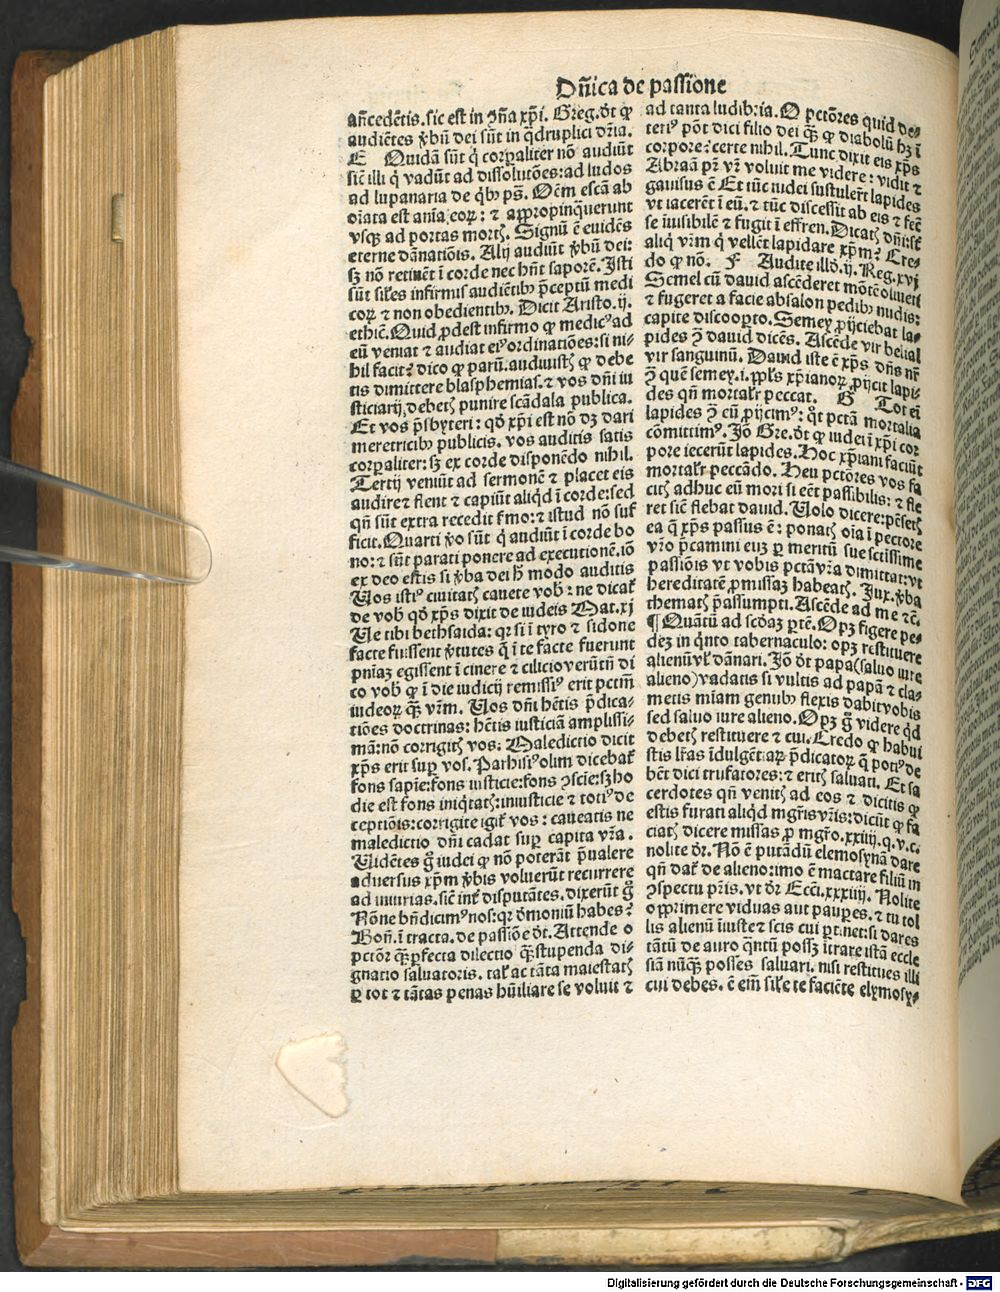 Dñica de passione
añcedẽtis. sic est in ꝯña xp̃i. Greg. ðt ꝙ
audiẽtes ꝟbũ dei sũt in q̃druplici dr̃ia.
E Quidã sũt q̇ corꝑaliter nõ audiũt
sic̃ illi q̇ vadũt ad dissolutões: ad ludos
ad lupanaria de qib᷒ ps̃. Oẽm escã ab
oĩata est anĩa eoꝝ: ⁊ appropinq̃uerunt
vsqꝫ ad portas mortꝭ. Signũ ẽ euidẽs
eterne dãnatiõis. Alij audiũt ꝟbũ dei:
sꝫ nõ retinẽt ĩ corde nec hñt saporẽ. Isti
sũt sil̃es infirmis audiẽtibꝰ p̃ceptũ medi
coꝝ ⁊ non obedientibꝰ. Dicit Aristo. ij.
ethic̃. Quid ꝓdest infirmo ꝙ medicꝰ ad
eũ veniat ⁊ audiat eiꝰ ordinatiões: si ni-
hil facit? dico ꝙ parũ. audiuistꝭ ꝙ debe
tis dimittere blasphemias. ⁊ vos dñi iu
sticiarij, debetꝭ punire scãdala publica.
Et vos p̃sbyteri: qð xp̃i est nõ dꝫ dari
meretricibꝰ publicis. vos auditis satis
corꝑaliter: sꝫ ex corde disponẽdo nihil.
Tertij veniũt ad sermonẽ ⁊ placet eis
audire ⁊ flent ⁊ capiũt aliq̇d ĩ corde: sed
qñ sũt extra recedit s̃mo: ⁊ istud nõ suf
ficit. Quarti ꝟo sũt q̇ audiũt ĩ corde bo
no: ⁊ sũt parati ponere ad executionẽ. iõ
ex deo estis si ꝟba dei h̃ modo auditis
Uos istiꝰ ciuitatꝭ cauete vob̃: ne dicat̃
de vob̃ qð xp̃s dixit de iudeis Mat. xj
Ue tibi bethsaida: qꝛ si ĩ tyro ⁊ sidone
facte fuissent ꝟtutes q̃ ĩ te facte fuerunt
pñiaꝫ egissent ĩ cinere ⁊ cilicio verũtñ di
co vob̃ ꝙ ĩ die iudicij remissiꝰ erit pctm̃
iudeoꝝ q̃ꝫ vr̃m. Uos dñi hẽtis p̃dica-
tiões doctrinas: hẽtis iusticiã amplissi-
mã: nõ corrigitꝭ vos: Maledictio dicit
xp̃s erit suꝑ vos. Parhisiꝰ olim dicebat̃
fons sapiẽ: fons iusticie: fons ꝯscie: sꝫ ho
die est fons iniq̇tatꝭ: iniusticie ⁊ totiꝰ de
ceptiõis: corrigite igit̃ vos: caueatis ne
maledictio dñi cadat suꝑ capita vr̃a.
Uidẽtes g̃ iudei ꝙ nõ poterãt p̃ualere
aduersus xp̃m ꝟbis voluerũt recurrere
ad iniurias. sic̃ int̃ disputãtes. dixerũt g̃
Nõne bñdicimꝰ nos: qꝛ ðmoniũ habes?
Boñ. ĩ tracta. de passiõe ðt. Attende o
pctõr q̃ꝫ ꝑfecta dilectio q̃ꝫ stupenda di-
gnatio saluatoris. tal̃ ac tãta maiestatꝭ
ꝑ tot ⁊ tãtas penas hũiliare se voluit ⁊
ad tanta ludibria. O pctõres quid de-
teriꝰ põt dici filio dei q̃ꝫ ꝙ diabolũ hꝫ ĩ
corpore: certe nihil. Tunc dixit eis xp̃s
Abraã pr̃ vr̃ voluit me videre: vidit ⁊
gauisus ẽ Et tũc iudei sustulerũt lapides
vt iacerẽt ĩ eũ. ⁊ tũc discessit ab eis ⁊ fec̃
se inuisibilẽ ⁊ fugit ĩ effren. Dicatꝭ dñi: si c̃
aliq̇ vr̃m q̇ vellẽt lapidare xp̃m? Cre-
do ꝙ nõ. F Audite illð. ij. Reg. xvj
Semel cũ dauid ascẽderet mõtẽ oliueti
⁊ fugeret a facie absalon pedibꝰ nudis:
capite discooꝑto. Semey ꝓijciebat la-
pides ꝯ̃ dauid dicẽs. Ascẽde vir belial
vir sanguinũ. Dauid iste ẽ xp̃s dñs nr̃
ꝯ̃ quẽ semey. i. ppl̃s xp̃ianoꝝ ꝓijcit lapi-
des qñ mortalr̃ peccat. G Tot eñ
lapides ꝯ̃ eũ ꝓijcimꝰ: q̇t pctã mortalia
cõmittimꝰ. Jõ Gre. ðt ꝙ iudei ĩ xp̃i cor
pore iecerũt lapides. Hoc xp̃iani faciũt
mortalr̃ peccãdo. Heu pctõres vos fa
citꝭ adhuc eũ mori si eẽt passibilis: ⁊ fle
ret sic̃ flebat dauid. Uolo dicere: pẽsetꝭ
ea q̃ xp̃s passus ẽ: ponatꝭ oĩa ĩ pectore
vr̃o p̃camini euꝫ ꝑ meritũ sue sctissime
passiõis vt vobis pctã vr̃a dimittat: vt
hereditatẽ ꝓmissaꝫ habeatꝭ. Jux. ꝟba
thematꝭ p̃assumpti. Ascẽde ad me ⁊c̃.
¶ Quãtũ ad scðaꝫ ꝑtẽ. Opꝫ figere pe-
deꝫ in q̇nto tabernaculo: opꝫ restituere
alienũ vl̃ dãnari. Jõ ðt papa (saluo iure
alieno) vadatis si vultis ad papã ⁊ cla-
metis miam genubꝰ flexis dabit vobis
sed saluo iure alieno. Opꝫ g̃ videre q̇d
debetꝭ restituere ⁊ cui. Credo ꝙ habui
stis lr̃as ĩdulgẽtiaꝝ p̃dicatoꝝ q̇ potiꝰ de
bẽt dici trufatores: ⁊ eritꝭ saluati. Et sa
cerdotes qñ venitꝭ ad eos ⁊ dicitis ꝙ
estis furati aliq̇d mgr̃is vr̃is: dicũt ꝙ fa
ciatꝭ dicere missas ꝓ mgr̃o. xxiiij. q. v. c.
nolite ðr. Nõ ẽ putãdũ elemosynã dare
qñ dat̃ de alieno: imo ẽ mactare filiũ in
ꝯspectu pr̃is. vt ðr Ecci. xxxiiij. Nolite
opprimere viduas aut pauꝑes. ⁊ tu tol
lis alienũ iniuste ⁊ scis cui ꝑtinet: si dares
tãtũ de auro q̃ntũ possꝫ ĩtrare istã eccle
siã nũq̃ꝫ posses saluari. nisi restitues illi
cui debes. ẽ em̃ sil̃e te faciẽte elymosy-